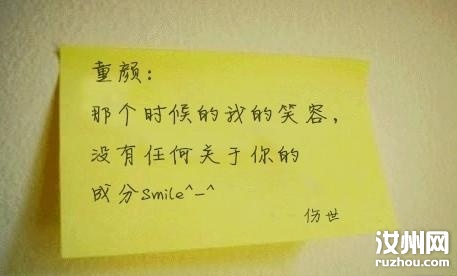 童颜：
那个时候的我的笑容，
没有任何关于你的
成分smile^_^
伤世
汝州网
ruzhou.com